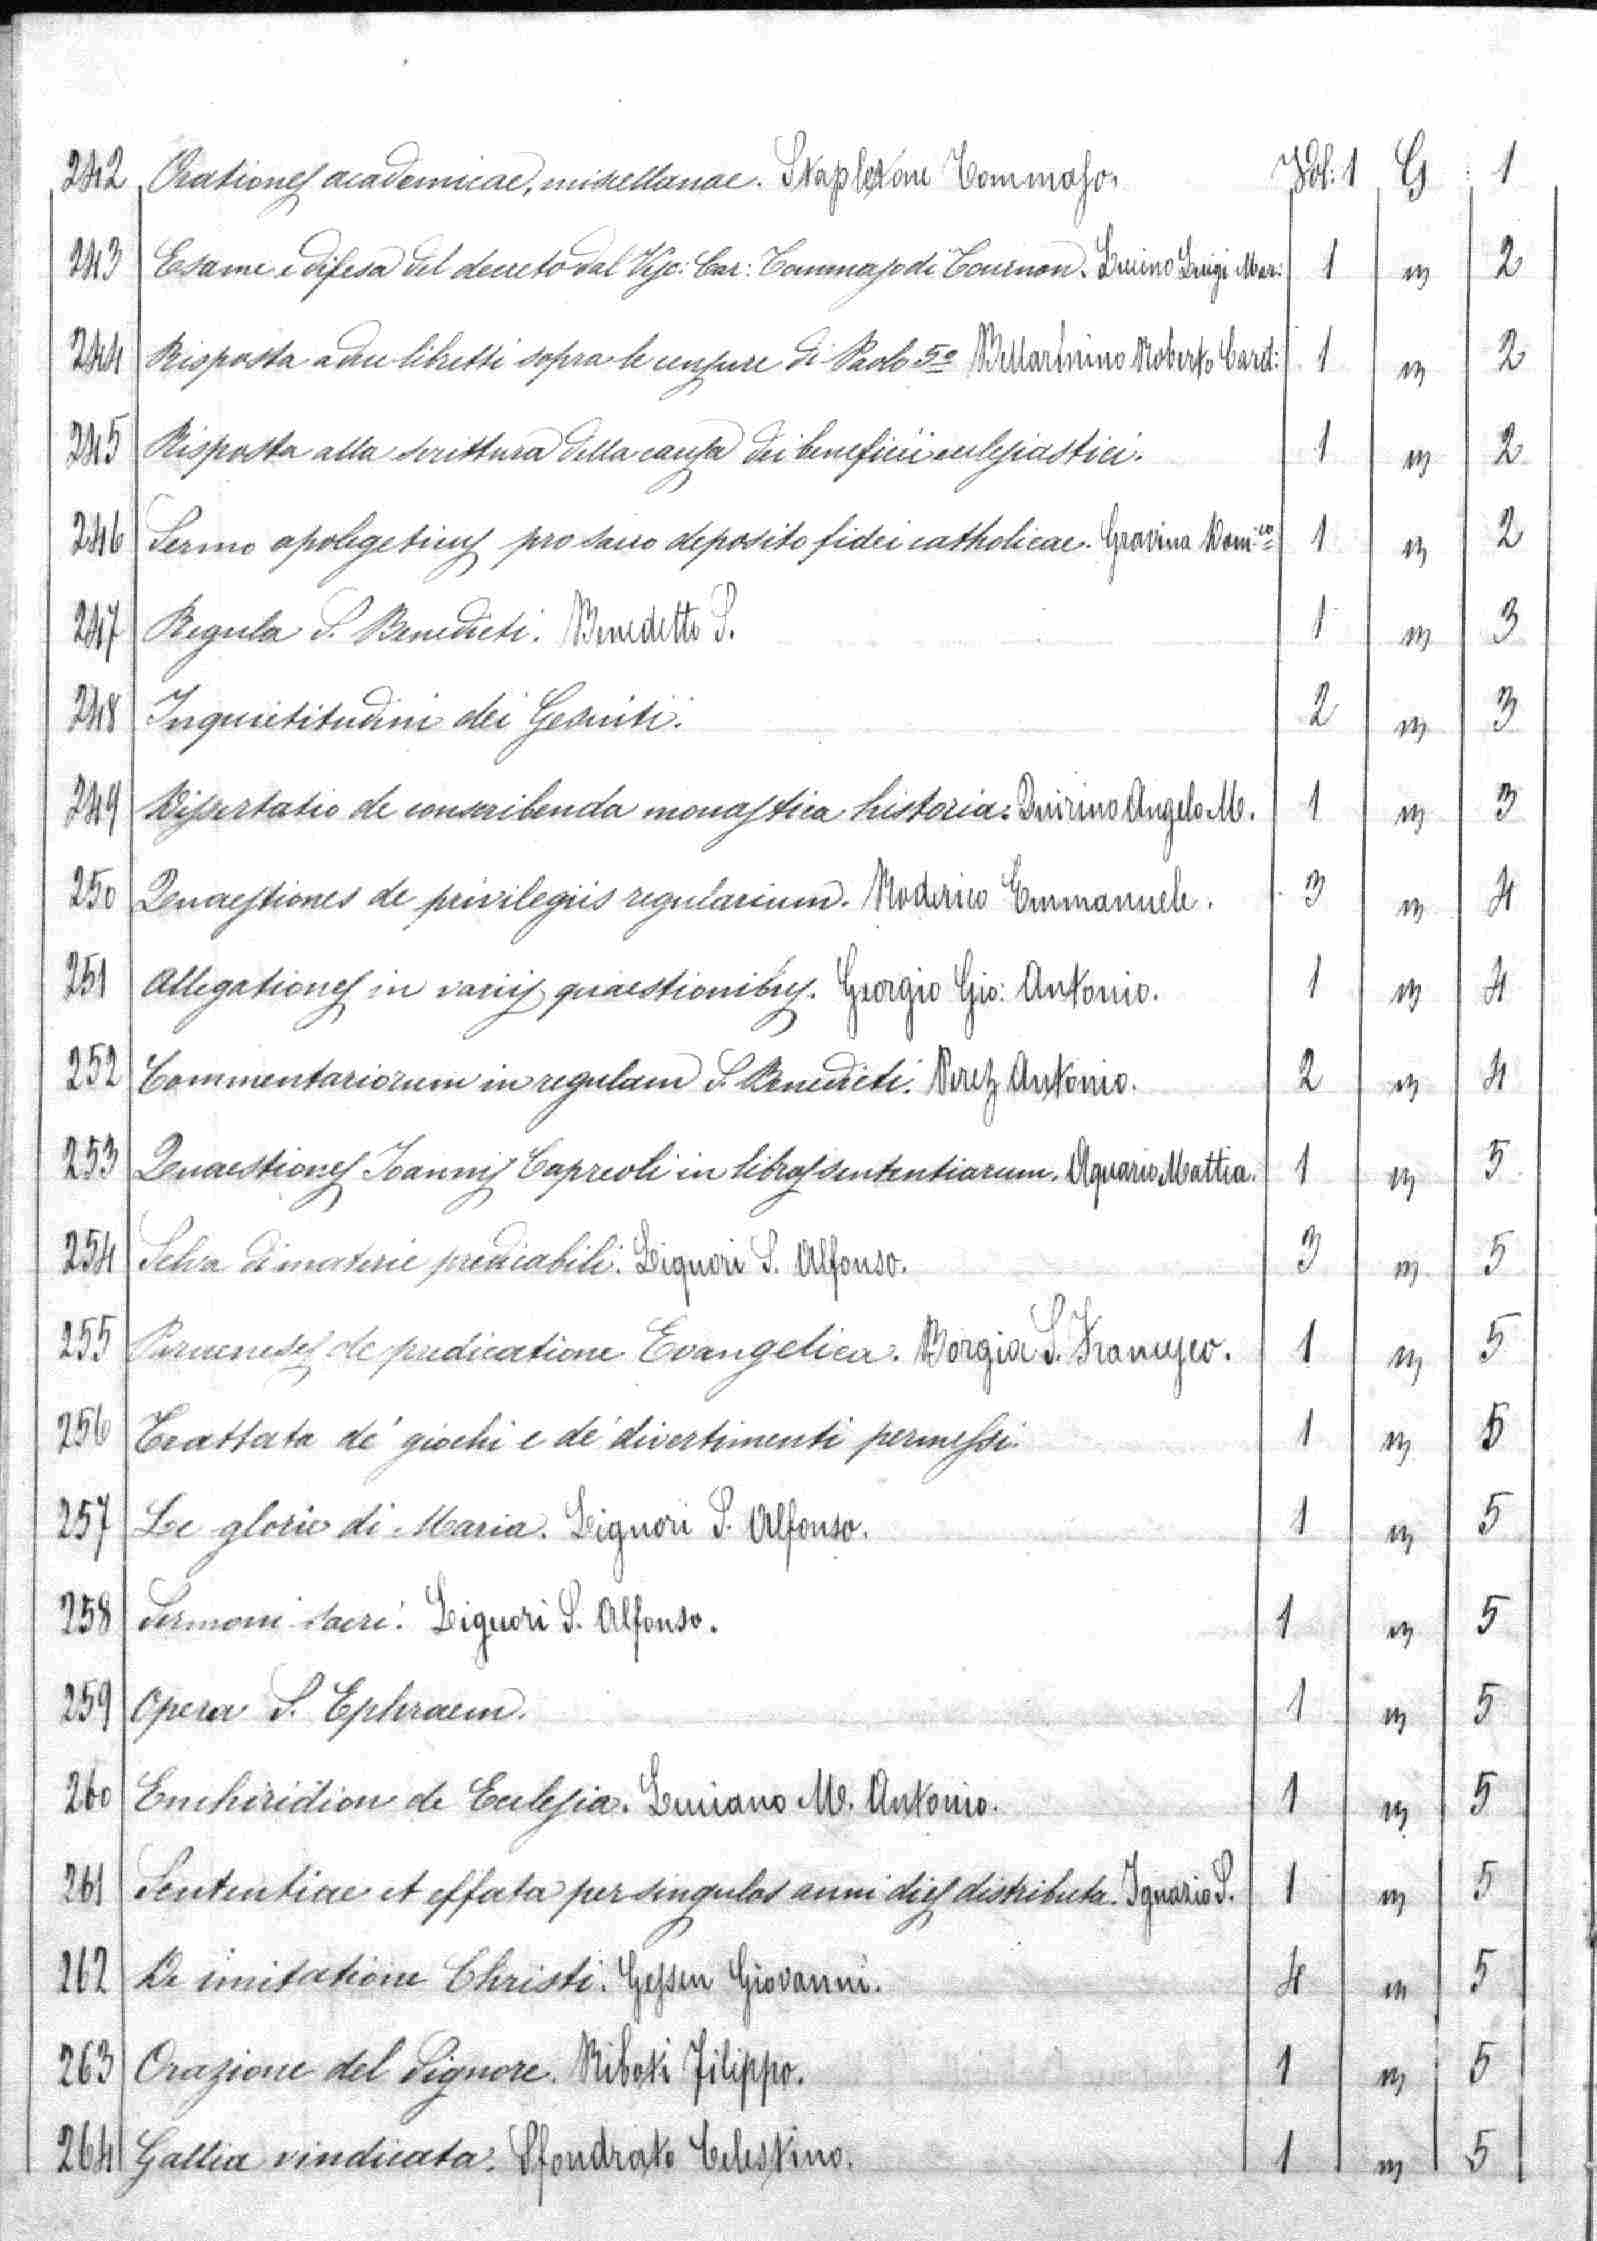 242 Orationes academicae, miscellanae. Stapletone Tommaso. Vol: 1 G 1
243 Esame e difesa del decreto dal Car: Tommaso di Tournon. Lucino Luigi Mar: 1 " 2
244 Risposta a due libretti sopra le censure di Paolo 5º Bellarmino Roberto Card: 1 " 2
245 Risposta alla scrittura della causa dei beneficii eclesiastici. 1 " 2
246 Sermo apologeticus pro sacro deposito fidei catholicae. Gravina Dom:co 1 " 2
247 Regula S. Benedicti. Benedetto S. 1 " 3
248 Inquietitudini dei Gesuiti. 2 " 3
249 Dissertatio de conscribenda monastica historia. Quirino Angelo M. 1 " 3
250 Quaestiones de privilegiis regularium. Roderico Emmanuele. 3 " 4
251 Allegationes in variis quaestionibus. Georgio Gio: Antonio. 1 " 4
252 Commentariorum in regulam S. Benedicti. Perez Antonio. 2 " 4
253 Quaestiones Ioannis Capreoli in libros sententiarum. Aquario Mattia. 1 " 5
254 Selva di materie predicabili. Liguori S. Alfonso. 3 " 5
255 de predicatione Evangelica. Borgia S. Francesco. 1 " 5
256 Trattato de' giochi e de' divertimenti permessi. 1 " 5
257 Le glorie di Maria. Liguori S. Alfonso. 1 " 5
258 Sermoni sacri. Liguori S. Alfonso. 1 " 5
259 Opera S. Ephraem. 1 " 5
260 Enchiridion de Eclesia. Luciano M. Antonio. 1 " 5
261 Sententiae et effata per singulos anni dies distributa. Ignazio S. 1 " 5
262 De imitatione Christi. Gessen Giovanni. 4 " 5
263 Orazione del Signore. Riboti Filippo. 1 " 5
264 Gallia vindicata. Sfondrato Celestino. 1 " 5